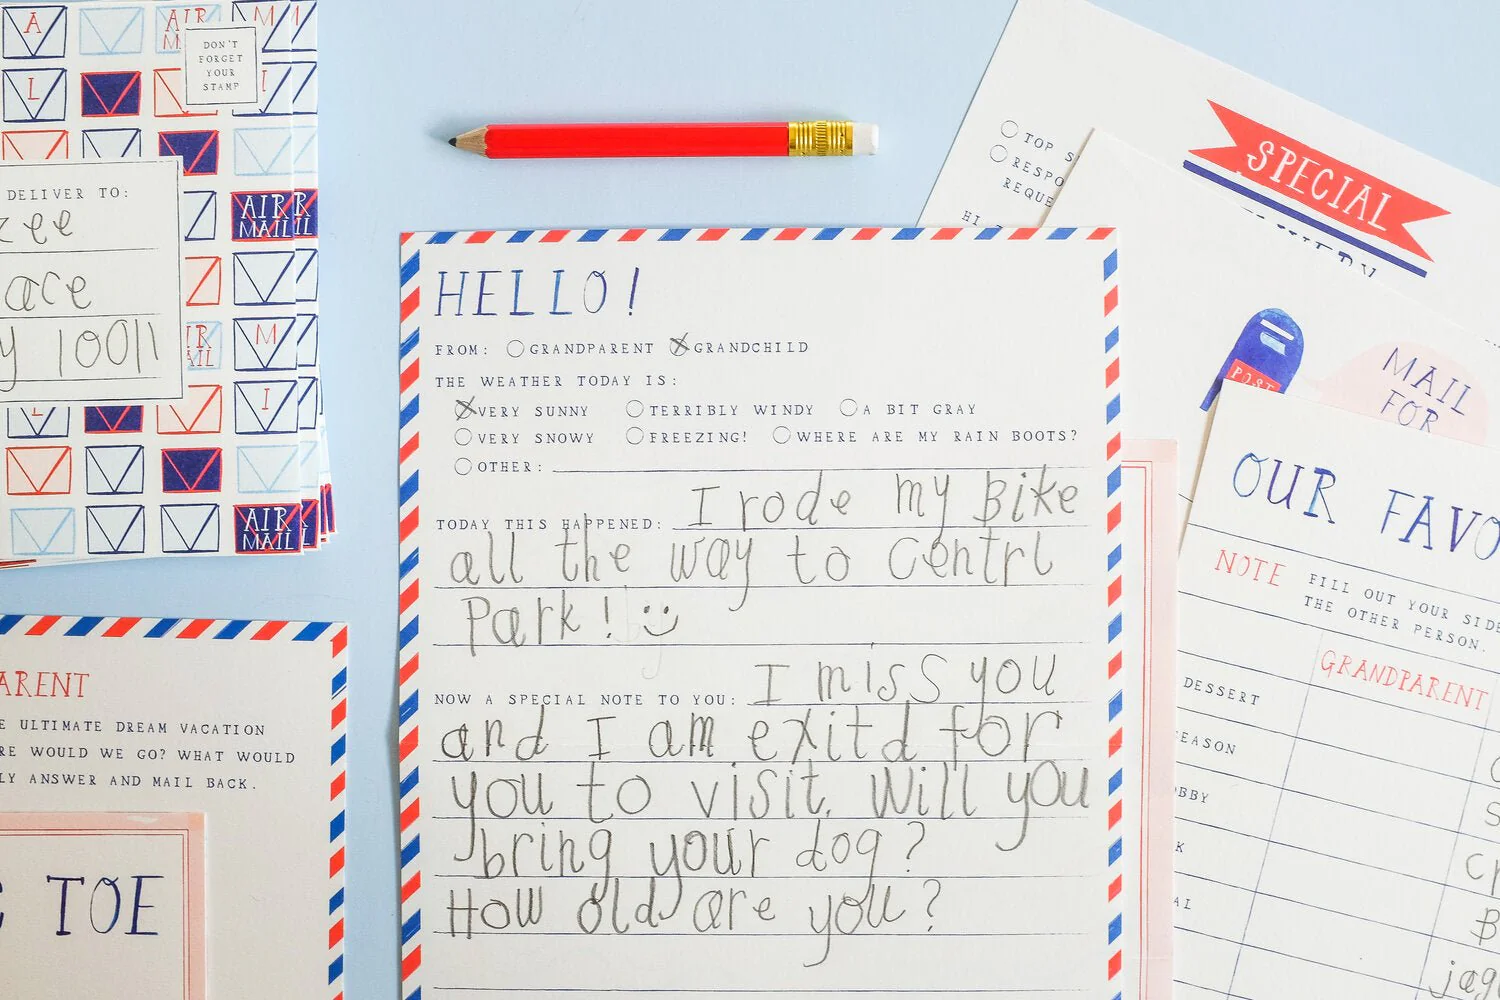 A
AIR
M
DON'T
FORGET
YOUR
STAMP
L
I
DELIVER TO:
AIR
MAIL
10011
M
L
I
AIR
MAIL
TOP
SPECIAL
HI
HELLO!
FROM: GRANDPARENT GRANDCHILD
THE WEATHER TODAY IS:
VERY SUNNY TERRIBLY WINDY A BIT GRAY
VERY SNOWY FREEZING! WHERE ARE MY RAIN BOOTS?
OTHER:
TODAY THIS HAPPENED: I rode my Bike
all the way to Centrl
Park!
NOW A SPECIAL NOTE TO YOU: I miss you
and I am exitd for
you to visit. Will you
bring your dog?
How old are you?
POST
MAIL
FOR
OUR
NOTE FILL OUT YOUR SIDE
THE OTHER PERSON.
GRANDPARENT
DESSERT
ULTIMATE DREAM VACATION
WOULD WE GO? WHAT WOULD
ANSWER AND MAIL BACK.
TOE